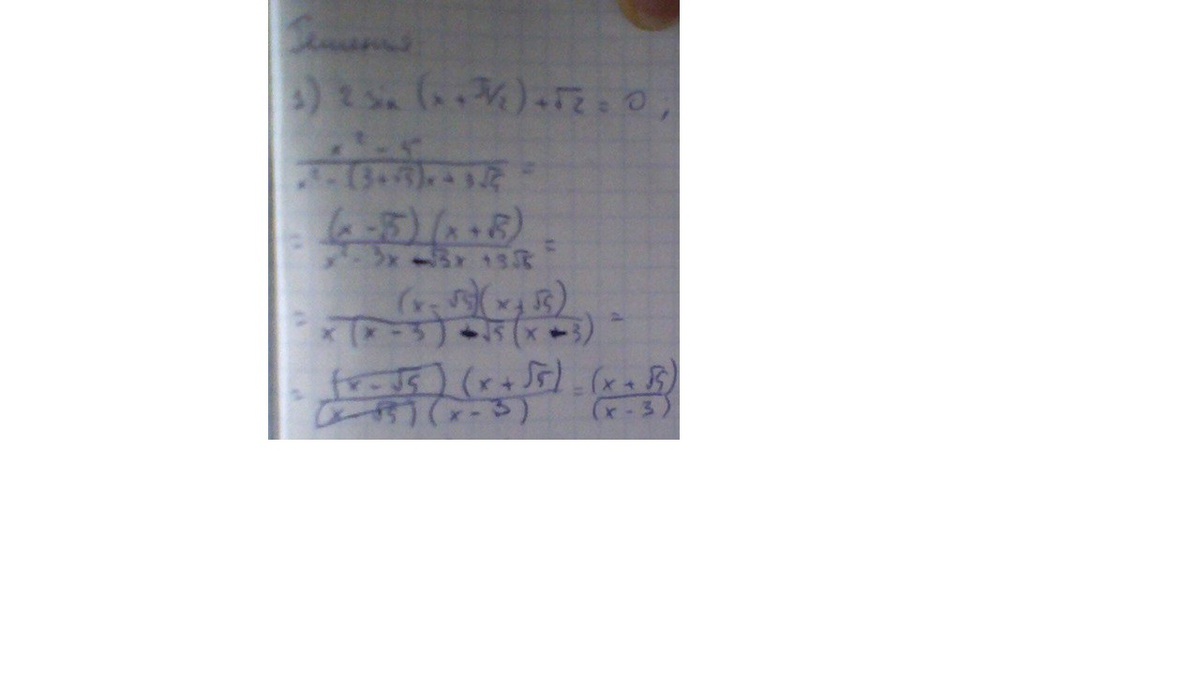 Решения
1) 2 sin (x + π/2) + √2 = 0,
x² - 5
x² - (3+√5)x + 3√5 =
= (x - √5) (x + √5)
x² - 3x - √5x + 3√5 =
= (x - √5)(x + √5)
x (x - 3) - √5 (x - 3) =
= (x - √5) (x + √5) = (x + √5)
(x - √5) (x - 3) (x - 3)